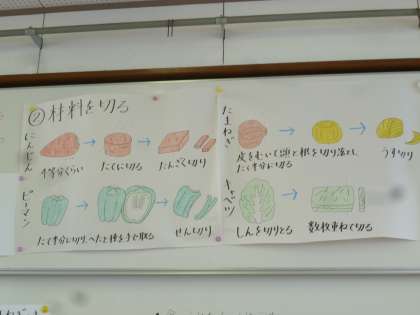 ②材料を切る
にんじん
4等分くらい
たてに切る
たんざく切り
ピーマン
たて半分に切り、へたと種を手で取る
せん切り
たまねぎ
皮をむいて頭と根を切り落とし
たて半分に切る
うす切り
キャベツ
しんを切りとる
数枚重ねて切る